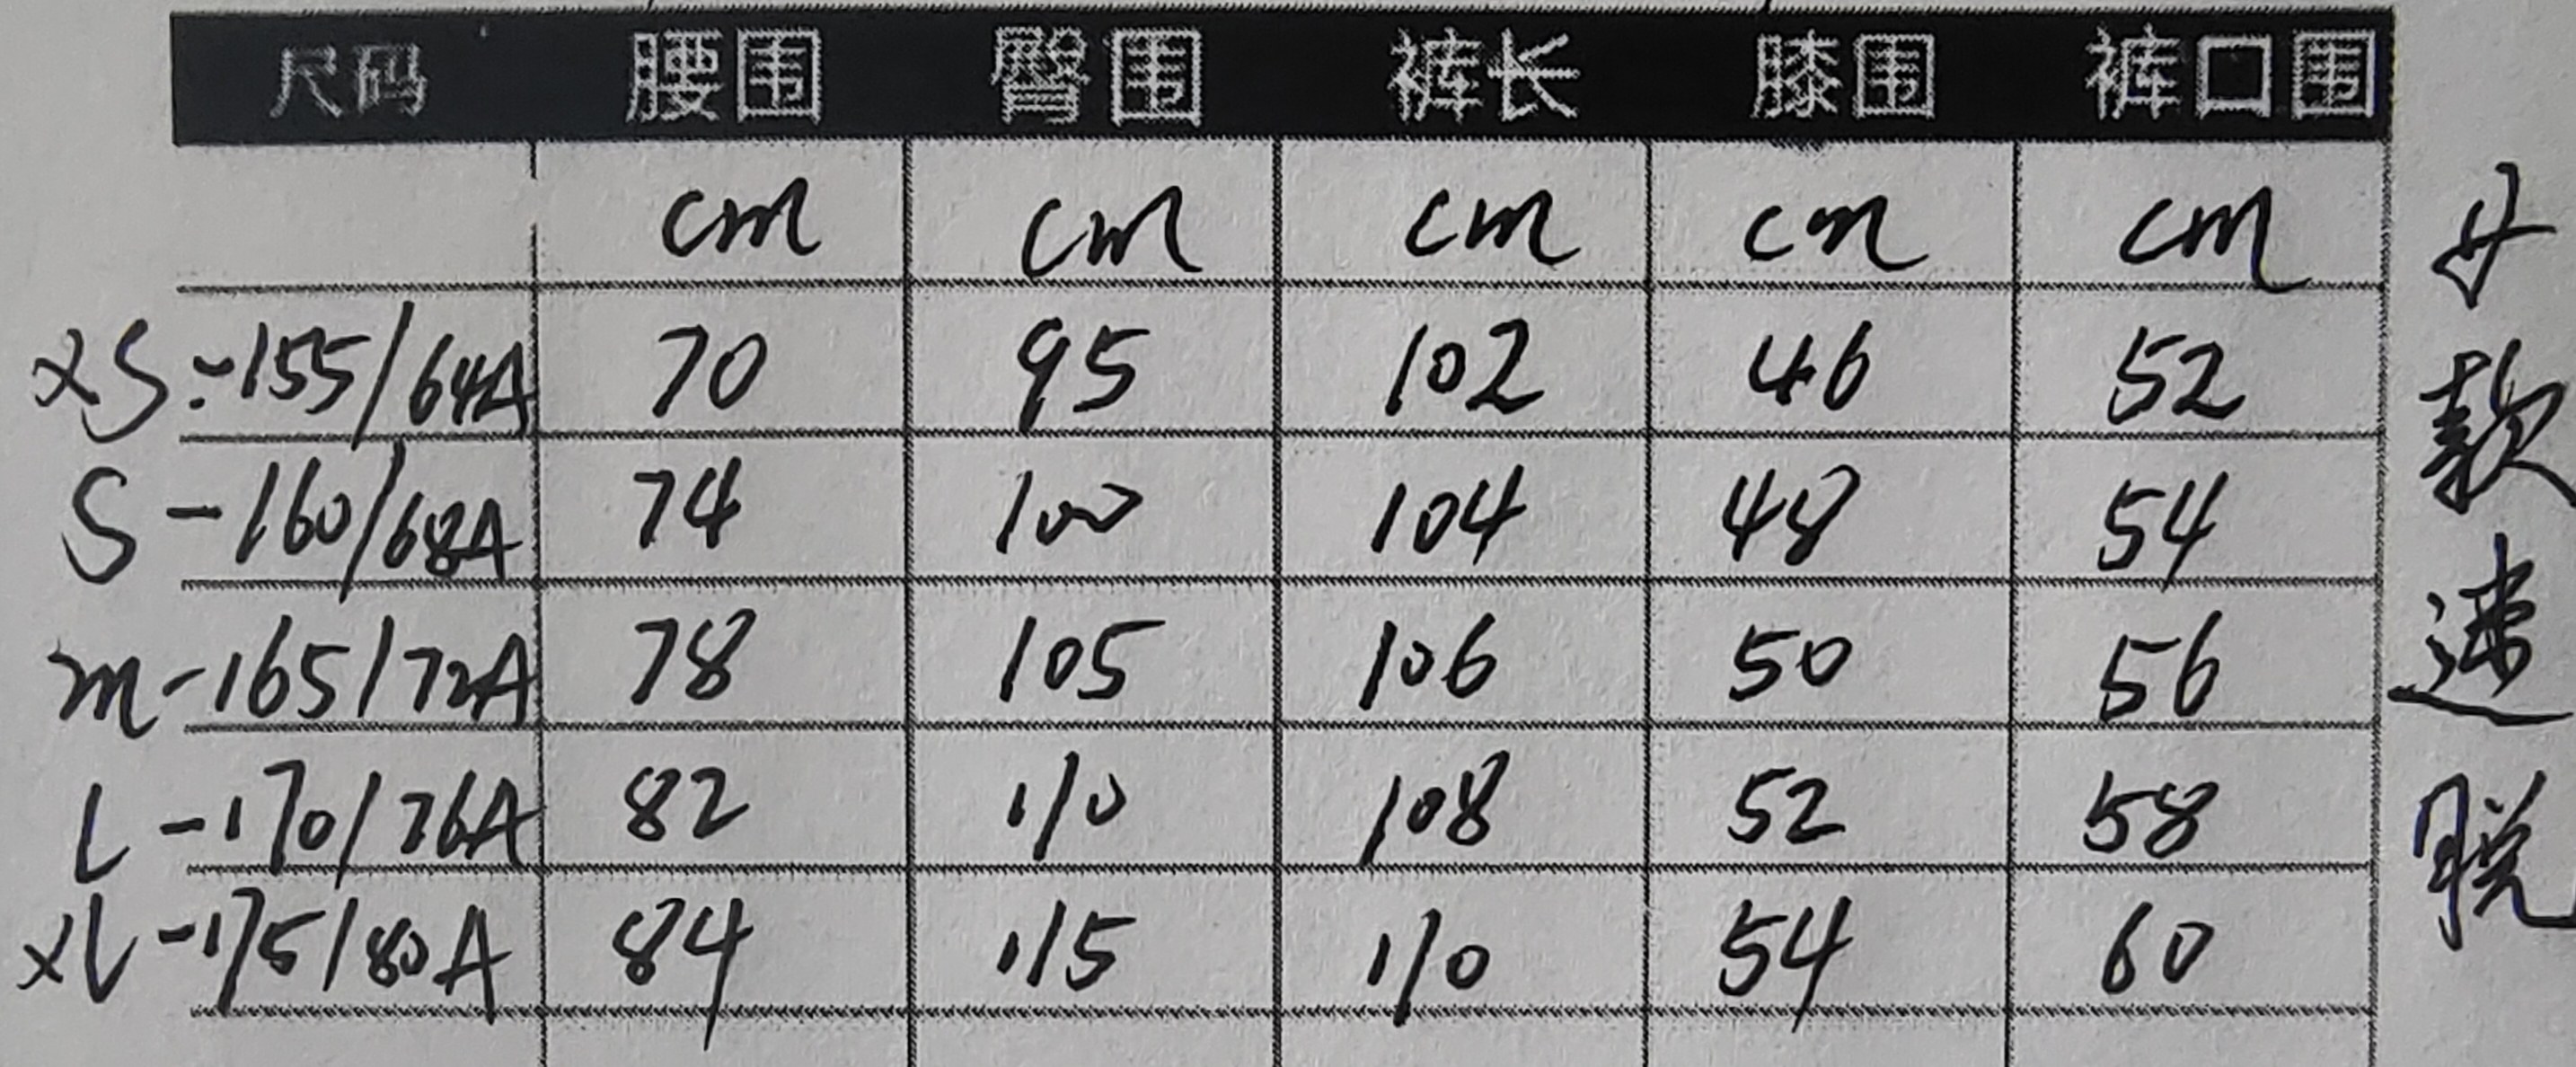 尺码 腰围 臀围 裤长 膝围 裤口围
cm cm cm cm cm
XS:-155/64A 70 95 102 46 52
S-160/68A 74 100 104 48 54
m-165/72A 78 105 106 50 56
L-170/76A 82 110 108 52 58
XL-175/80A 84 115 110 54 60
女款速脱